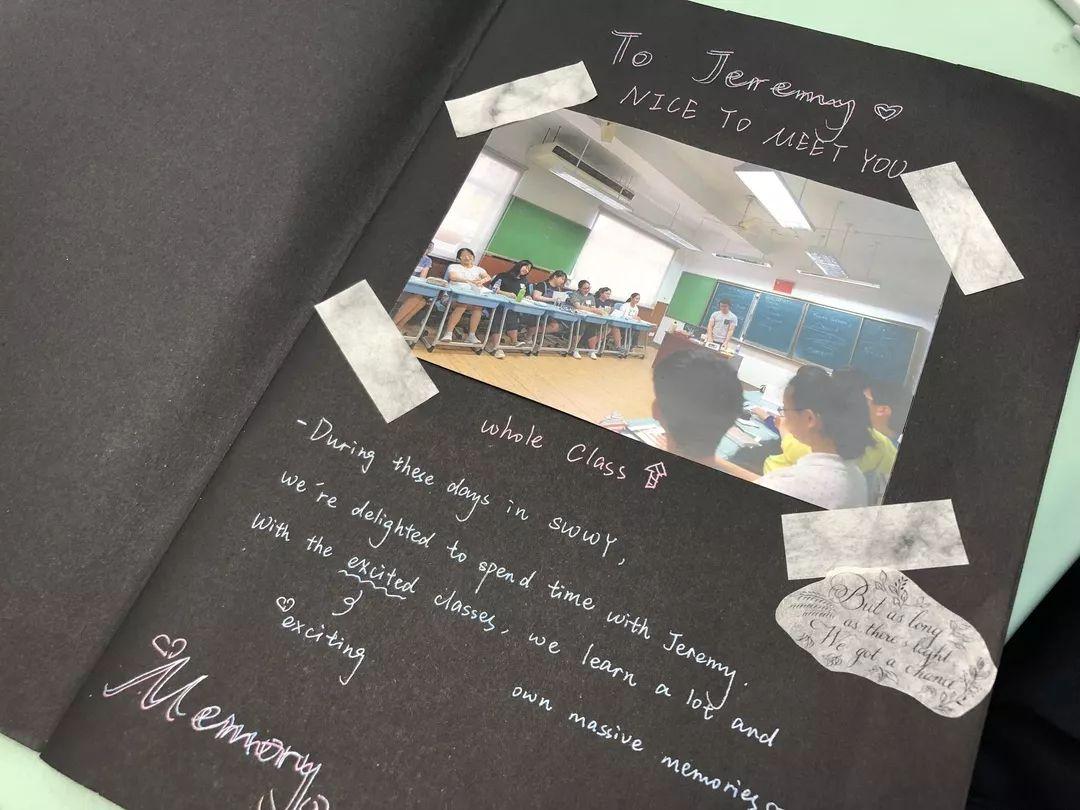 To Jeremy ♡
NICE TO MEET YOU
whole Class ⇧
-During these days in SWWY,
we're delighted to spend time with Jeremy.
With the excited classes, we learn a lot and
♡ exciting
own massive memories~
Memory
But as long
as there's light
We got a chance